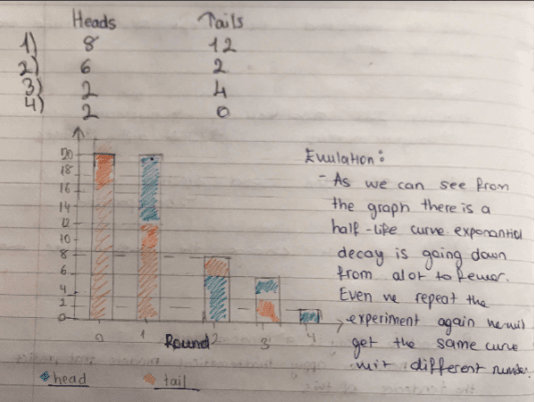 Heads Tails
1) 8 12
2) 6 2
3) 2 4
4) 2 0
20
18
16
14
12
10
8
6
4
2
0
0 1 2 3 4
Round
head tail
Evulation:
- As we can see from
the graph there is a
half-life curve exponantial
decay is going down
from alot to fewer.
Even we repeat the
experiment again we will
get the same curve
different number.